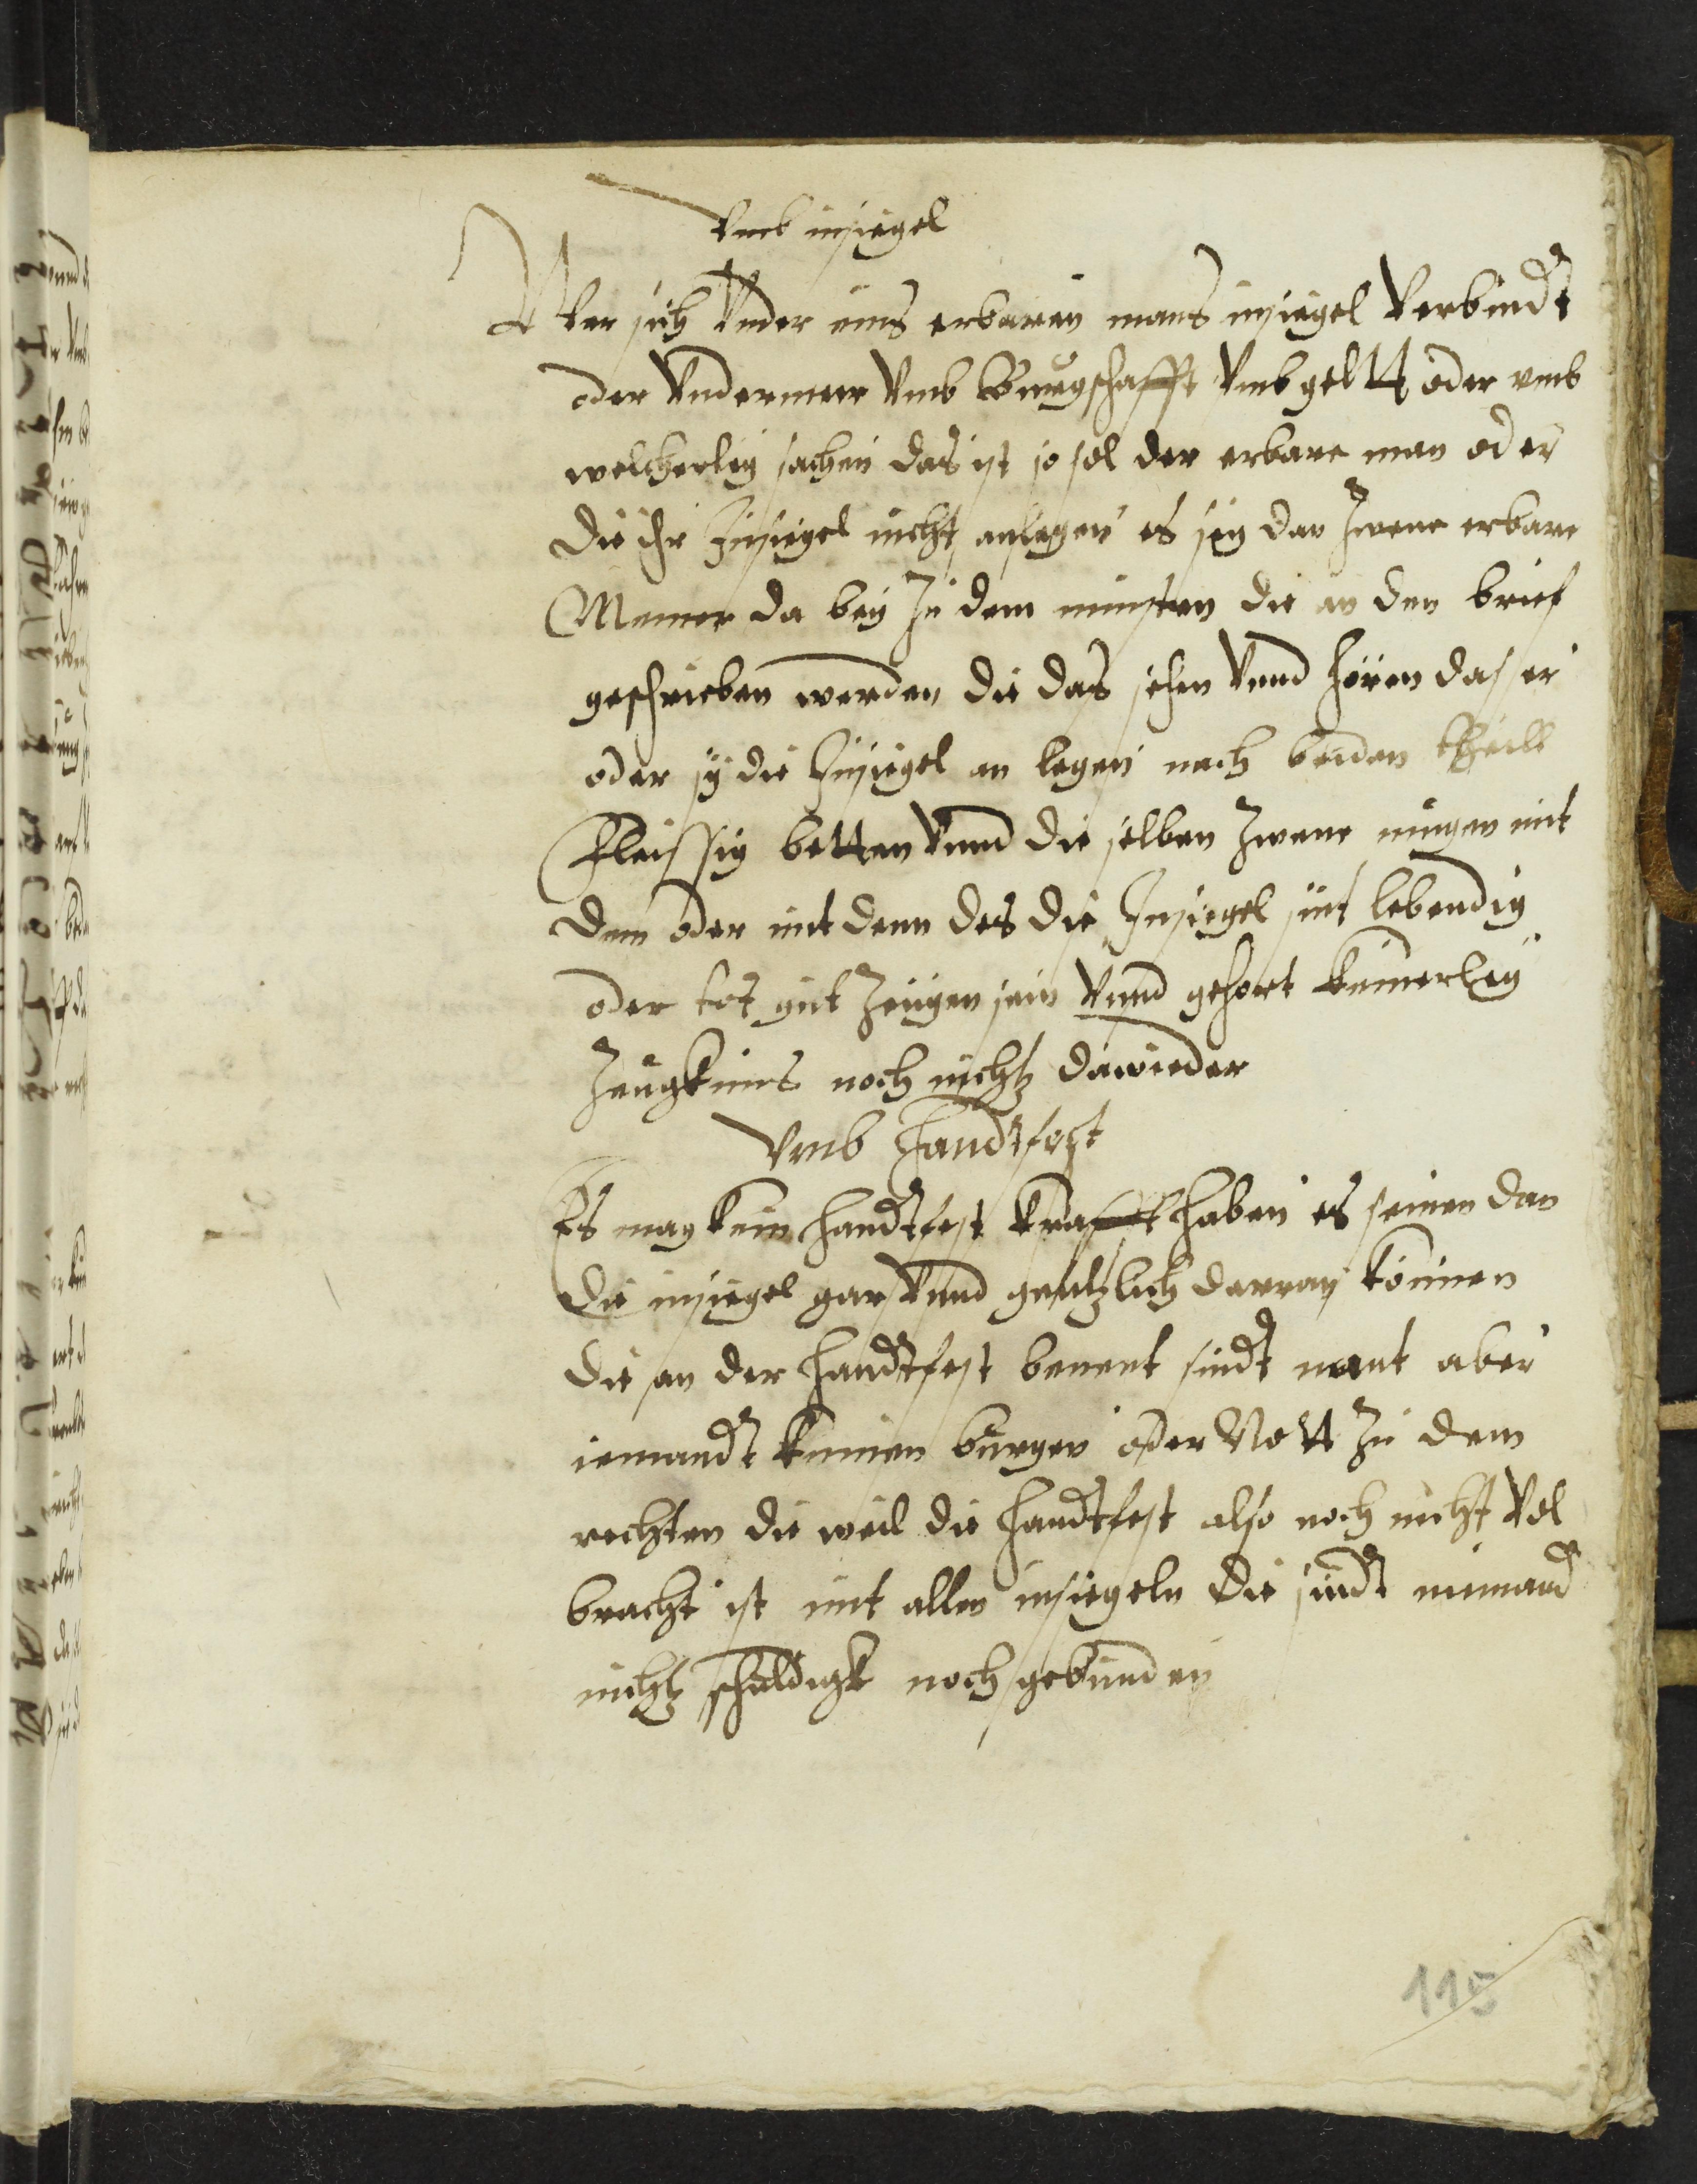 Vmb insiegel
Wer sich Vnder eins erbaren mans insiegel Verbindt
oder Vndermeer Vmb Burgschafft Vmb geltt oder vmb
welcherley sachen das ist so sol der erbare man oder
die ihr Insiegel nicht anlegen es sey dan Zwene erbare
Menner da bey Zu dem minsten die an den brief
geschrieben werden die das sehen Vnnd hören das er
oder sy die Insiegel an legen nach beiden theill
Fleissig betten Vnnd die selben Zwene mugen mit
dem oder mit denn des die Insiegel sint lebendig
oder tot gut Zeugen sein Vnnd gehort keinerley
Zeugknus noch nichtz dawieder
Vmb Handtfest
Es mag kein handtfest krafft haben es seinen dan
die insiegel gar Vnnd gentzlich darran komen
die an der handtfest benent sindt ment aber
iemandt keinen burgen oder Nott Zu dem
rechten die weil die handtfest also noch nicht Vol
bracht ist mit allen insiegeln die sindt niemand
nichtz schuldigk noch gebunden
115